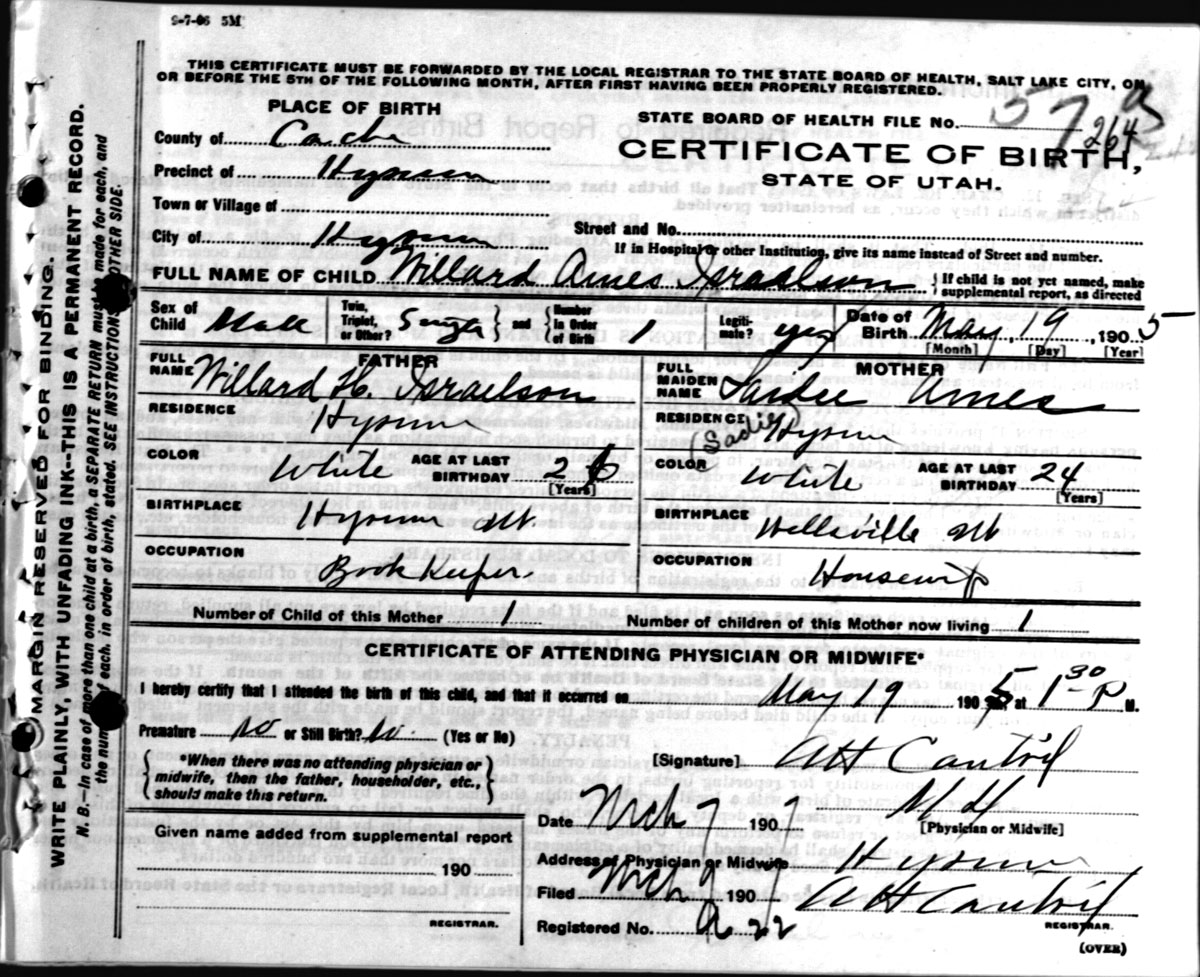 9-7-06 5M
THIS CERTIFICATE MUST BE FORWARDED BY THE LOCAL REGISTRAR TO THE STATE BOARD OF HEALTH, SALT LAKE CITY, ON
OR BEFORE THE 5TH OF THE FOLLOWING MONTH, AFTER FIRST HAVING BEEN PROPERLY REGISTERED.
PLACE OF BIRTH
County of Cache
Precinct of Hyrum
Town or Village of
City of Hyrum
STATE BOARD OF HEALTH FILE No. 57 a
264
CERTIFICATE OF BIRTH,
STATE OF UTAH.
Street and No.
If in Hospital or other Institution, give name instead of Street and number.
FULL NAME OF CHILD Willard Ames Israelson } If child is not yet named, make supplemental report, as directed
Sex of Child Male Twin, Triplet, or Other? Single } and { Number in Order of Birth 1 Legitimate? yes Date of Birth May 19, 1905
[Month] [Day] [Year]
FATHER
FULL NAME Willard H. Israelson
RESIDENCE Hyrum
COLOR White AGE AT LAST BIRTHDAY 26
[Years]
BIRTHPLACE Hyrum Ut
OCCUPATION Book Keeper
MOTHER
FULL MAIDEN NAME Saidee Ames
(Sadie)
RESIDENCE Hyrum
COLOR White AGE AT LAST BIRTHDAY 24
[Years]
BIRTHPLACE Wellsville Ut
OCCUPATION Housewife
Number of Child of this Mother 1 Number of children of this Mother now living 1
CERTIFICATE OF ATTENDING PHYSICIAN OR MIDWIFE*
I hereby certify that I attended the birth of this child, and that it occurred on May 19 1905 at 1 30 P M.
Premature no or Still Birth? no. (Yes or No)
{ *When there was no attending physician or
midwife, then the father, householder, etc.,
should make this return. }
[Signature] AH Cantril
MD
[Physician or Midwife]
Date Mch 7 1907
Address of Physician or Midwife Hyrum
Given name added from supplemental report
190
REGISTRAR.
Filed Mch 9 1907 AH Cantril
REGISTRAR.
Registered No. a 22
(OVER)
MARGIN RESERVED FOR BINDING.
WRITE PLAINLY, WITH UNFADING INK--THIS IS A PERMANENT RECORD.
N. B.--In case of more than one child at a birth, a SEPARATE RETURN must be made for each, and
the number of each, in order of birth, stated. SEE INSTRUCTIONS OTHER SIDE.